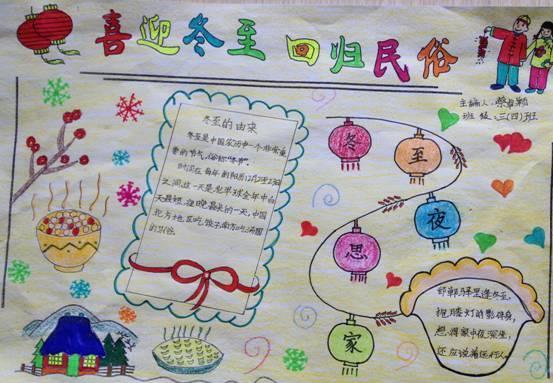 喜迎冬至 回归民俗
主编人:
班级:三(四)班
冬至的由来
冬至是中国农历中一个非常重
要的节气,俗称“冬节”。
时间在每年的阳历12月21至23日
之间,这一天是北半球全年中白
天最短、夜晚最长的一天,中国
北方地区吃饺子,南方吃汤圆
的习俗。
冬
至
夜
思
家
邯郸驿里逢冬至,
抱膝灯前影伴身,
想得家中夜深坐,
还应说着远行人。